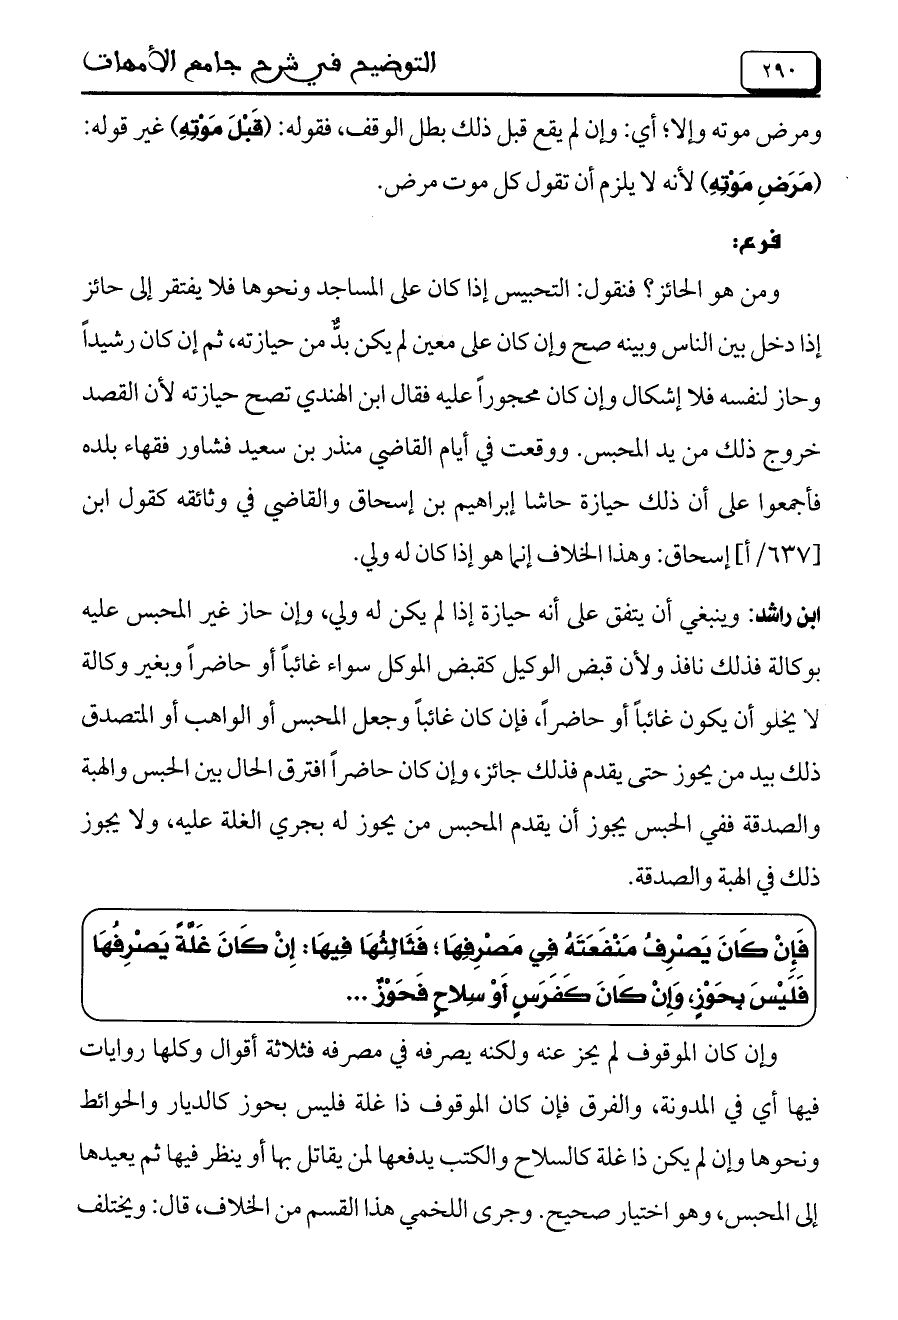 التوضيح في شرح جامع الأمهات
٢٩٠
ومرض موته وإلا؛ أي: وإن لم يقع قبل ذلك بطل الوقف، فقوله: (قَبْلَ مَوْتِهِ) غير قوله:
(مَرَضِ مَوْتِهِ) لأنه لا يلزم أن تقول كل موت مرض.
فرع:
ومن هو الحائز؟ فنقول: التحبيس إذا كان على المساجد ونحوها فلا يفتقر إلى حائز
إذا دخل بين الناس وبينه صح وإن كان على معين لم يكن بدٌّ من حيازته، ثم إن كان رشيداً
وحاز لنفسه فلا إشكال وإن كان محجوراً عليه فقال ابن الهندي تصح حيازته لأن القصد
خروج ذلك من يد المحبس. ووقعت في أيام القاضي منذر بن سعيد فشاور فقهاء بلده
فأجمعوا على أن ذلك حيازة حاشا إبراهيم بن إسحاق والقاضي في وثائقه كقول ابن
[٦٣٧/ أ] إسحاق: وهذا الخلاف إنما هو إذا كان له ولي.
ابن راشد: وينبغي أن يتفق على أنه حيازة إذا لم يكن له ولي، وإن حاز غير المحبس عليه
بوكالة فذلك نافذ ولأن قبض الوكيل كقبض الموكل سواء غائباً أو حاضراً وبغير وكالة
لا يخلو أن يكون غائباً أو حاضراً، فإن كان غائباً وجعل المحبس أو الواهب أو المتصدق
ذلك بيد من يجوز حتى يقدم فذلك جائز، وإن كان حاضراً افترق الحال بين الحبس والهبة
والصدقة ففي الحبس يجوز أن يقدم المحبس من يجوز له بجري الغلة عليه، ولا يجوز
ذلك في الهبة والصدقة.
فَإِنْ كَانَ يَصْرِفُ مَنْفَعَتَهُ فِي مَصْرِفِهَا؛ فَثَالِثُهَا فِيهَا: إِنْ كَانَ غَلَّةً يَصْرِفُهَا
فَلَيْسَ بِحَوْزٍ، وَإِنْ كَانَ كَفَرَسٍ أَوْ سِلاحٍ فَحَوْزٌ ...
وإن كان الموقوف لم يحز عنه ولكنه يصرفه في مصرفه فثلاثة أقوال وكلها روايات
فيها أي في المدونة، والفرق فإن كان الموقوف ذا غلة فليس بحوز كالديار والحوائط
ونحوها وإن لم يكن ذا غلة كالسلاح والكتب يدفعها لمن يقاتل بها أو ينظر فيها ثم يعيدها
إلى المحبس، وهو اختيار صحيح. وجرى اللخمي هذا القسم من الخلاف، قال: ويختلف